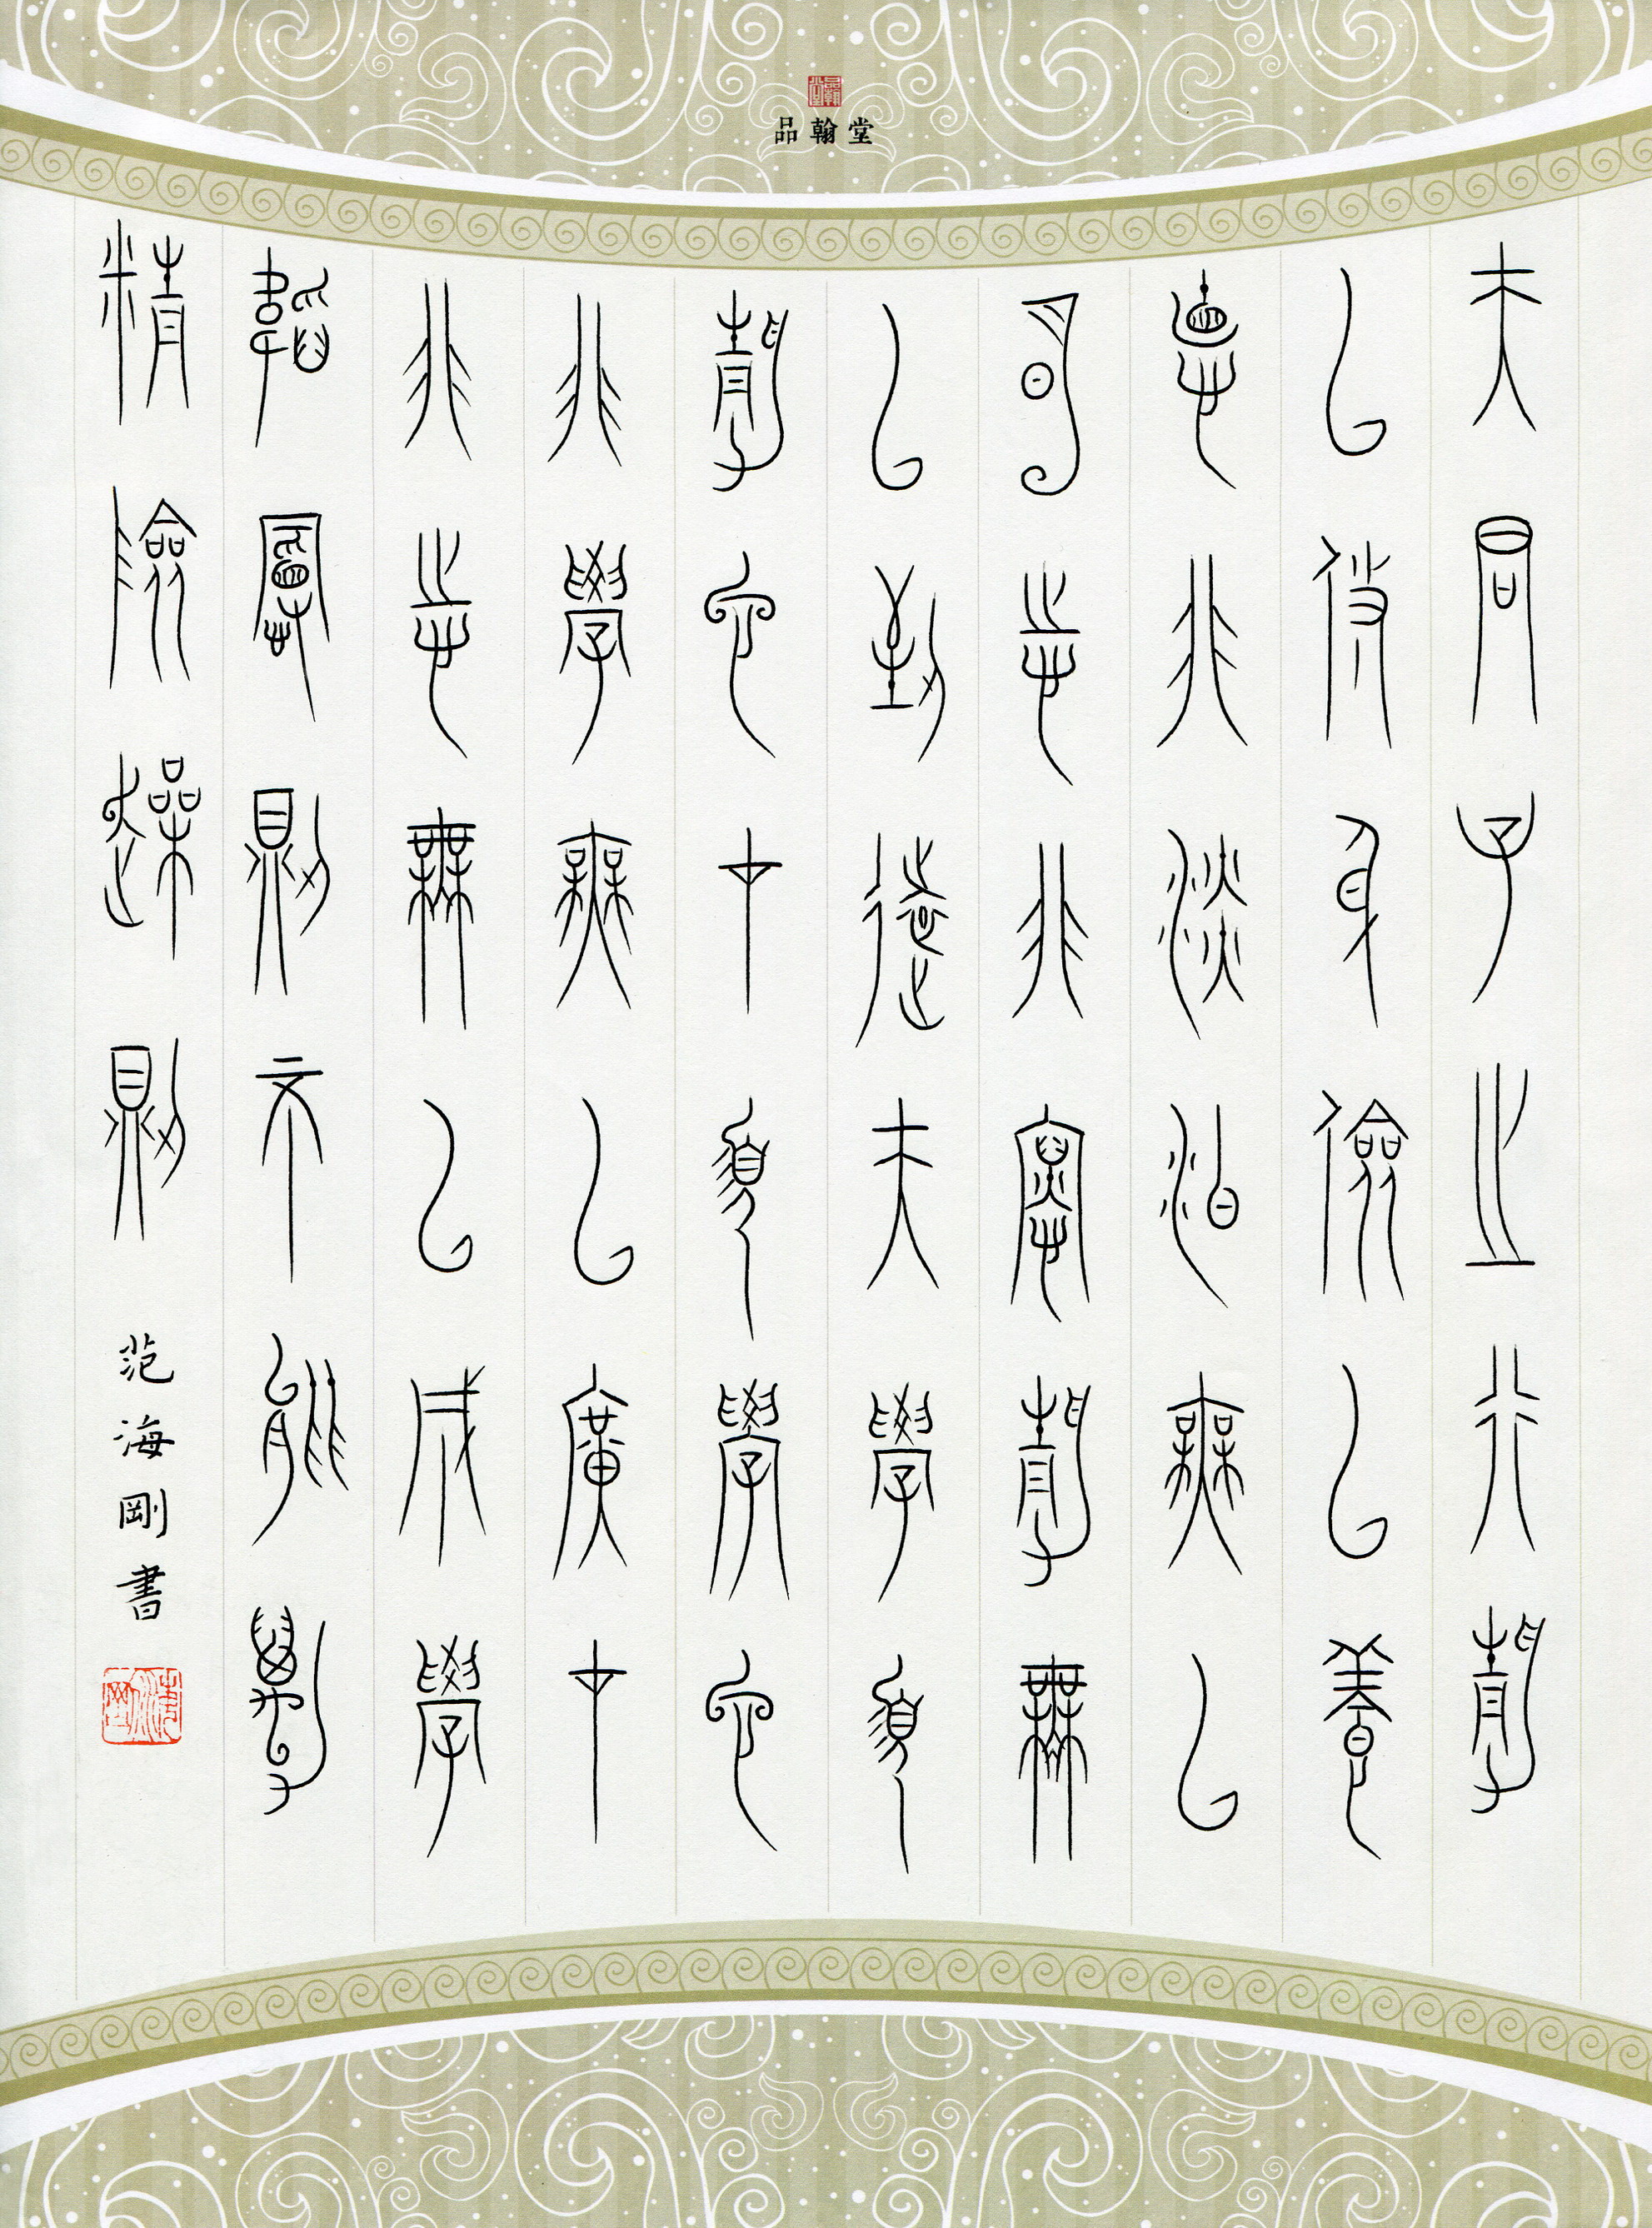 品翰堂
夫君子之行靜
以修身儉以養
德非淡泊無以
明志非寧靜無
以致遠夫學須
靜也才須學也
非學無以廣才
非志無以成學
韜慢則不能勵
精險躁則
范海剛書